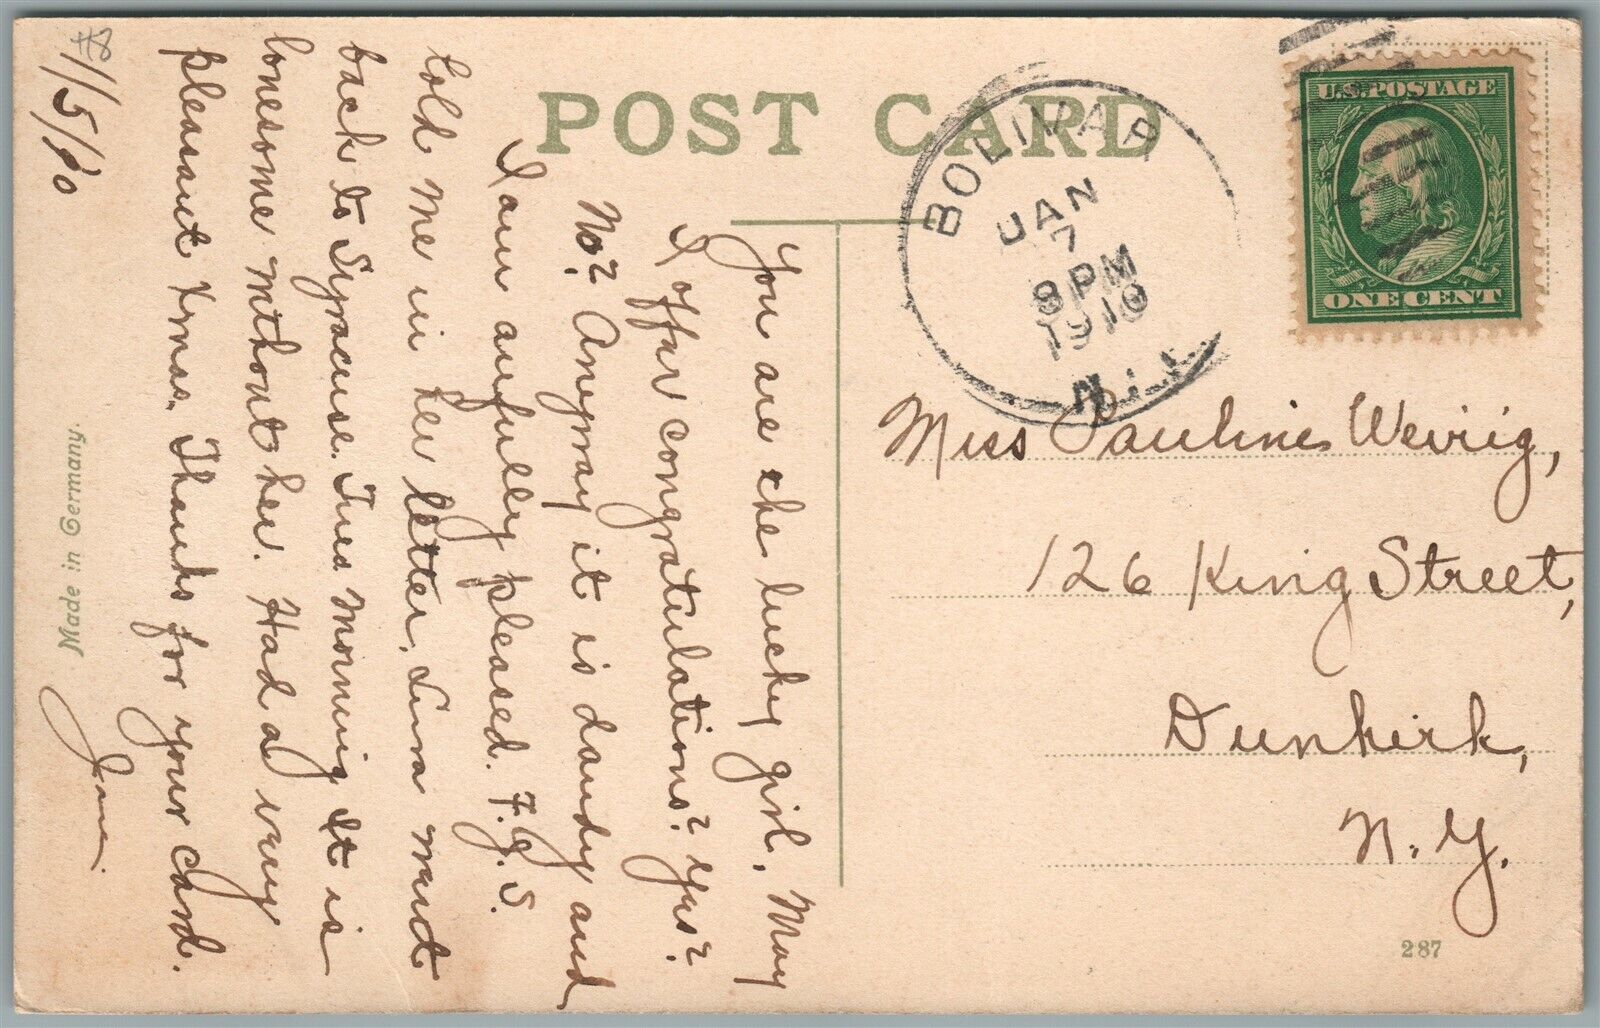 POST CARD
BOLIVAR
JAN
7
8 PM
1910
N.Y.
U.S. POSTAGE
ONE CENT
Miss Pauline Weirig,
126 King Street,
Dunkirk,
N. Y.
287
Made in Germany.
You are the lucky girl. May
I offer congratulations? Yes?
No? Anyway it is dandy and
I am awfully pleased. F.G.S.
told me in her letter. Lura went
back to Syracuse Tues morning. It is
lonesome without her. Had a very
pleasant Xmas. Thanks for your card.
1/5/10
Jane.